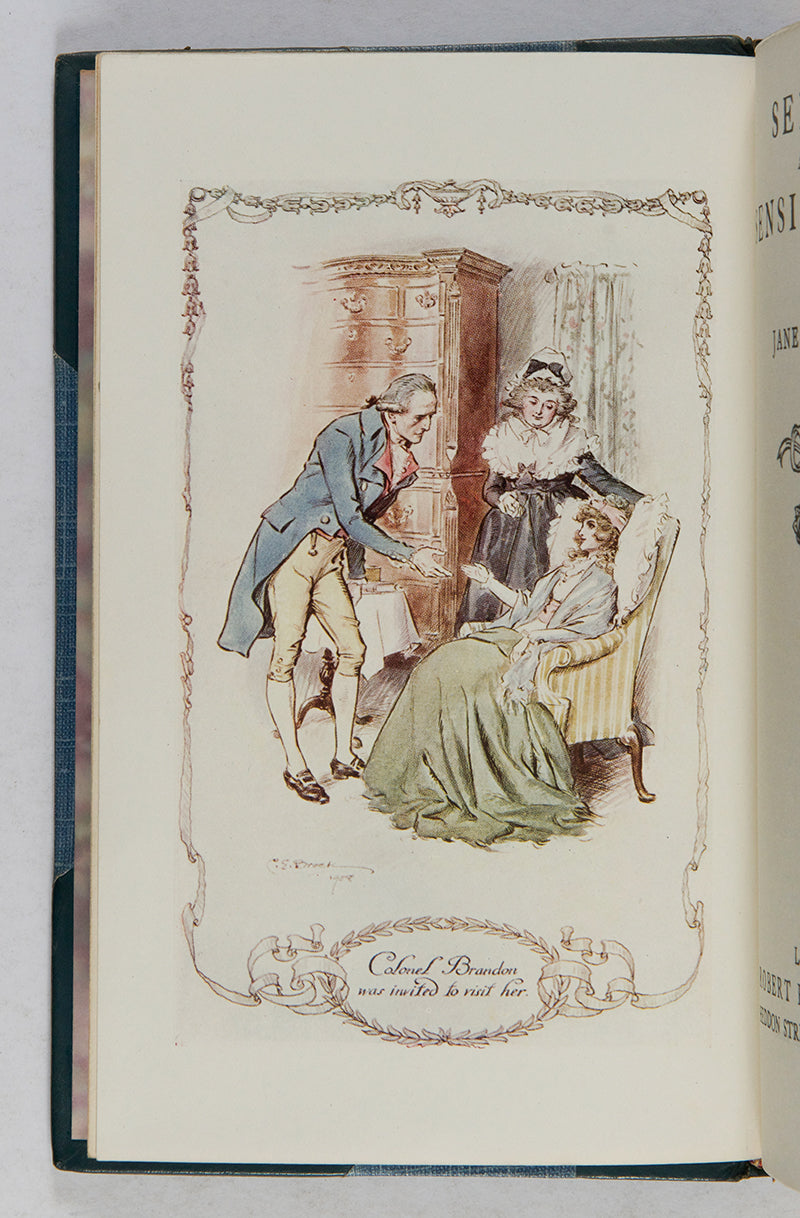 C. E. Brock
1908
Colonel Brandon
was invited to visit her.
SE
SENSI
JANE
L
ROBERT
STR